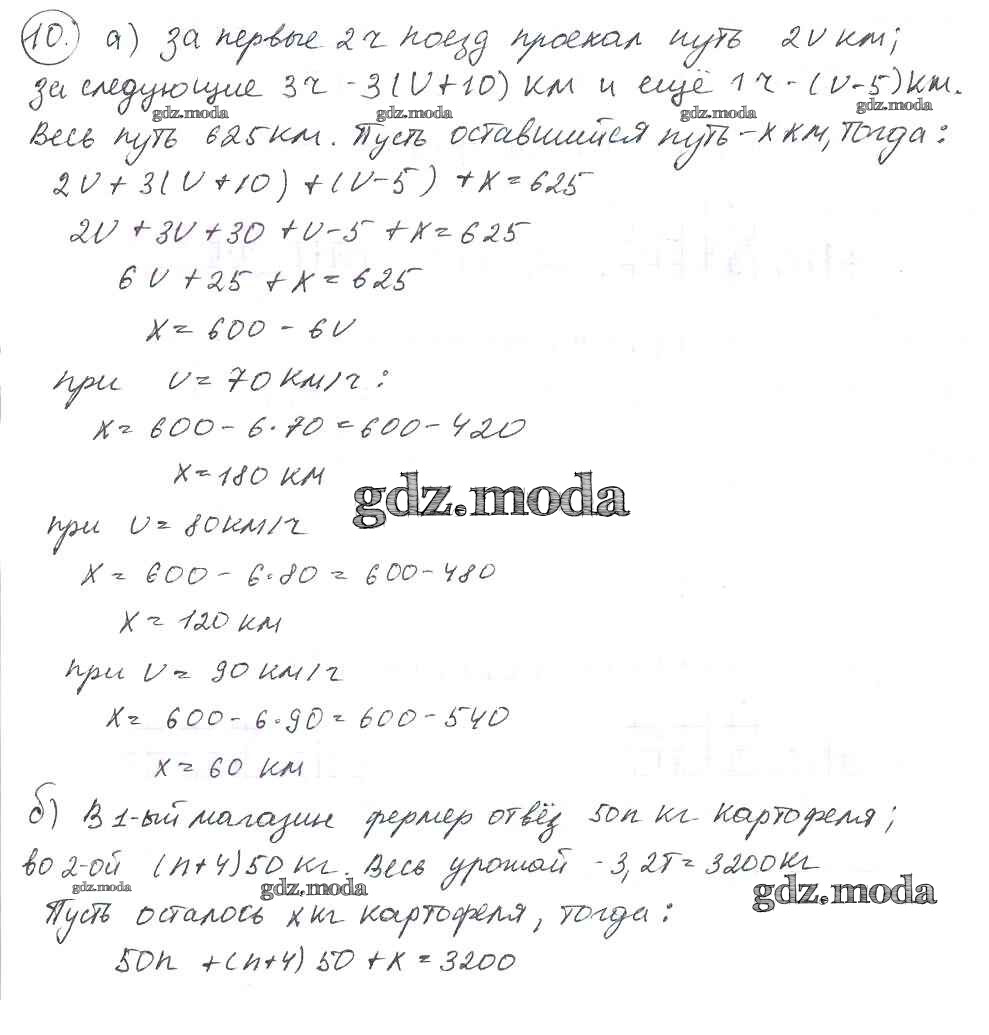 10. а) За первые 2ч поезд проехал путь 2V км;
за следующие 3ч - 3(V+10) км и ещё 1ч - (V-5) км.
gdz.moda gdz.moda gdz.moda gdz.moda
Весь путь 625 км. Пусть оставшийся путь - x км, тогда:
2V + 3(V+10) + (V-5) + x = 625
2V + 3V + 30 + V - 5 + x = 625
6V + 25 + x = 625
x = 600 - 6V
при V = 70 км/ч:
x = 600 - 6·70 = 600 - 420
x = 180 км
gdz.moda
при V = 80 км/ч
x = 600 - 6·80 = 600 - 480
x = 120 км
при V = 90 км/ч
x = 600 - 6·90 = 600 - 540
x = 60 км
б) В 1-ый магазин фермер отвёз 50n кг картофеля;
во 2-ой (n+4)50 кг. Весь урожай - 3,2т = 3200 кг
gdz.moda gdz.moda gdz.moda
Пусть осталось x кг картофеля, тогда:
50n + (n+4) 50 + x = 3200